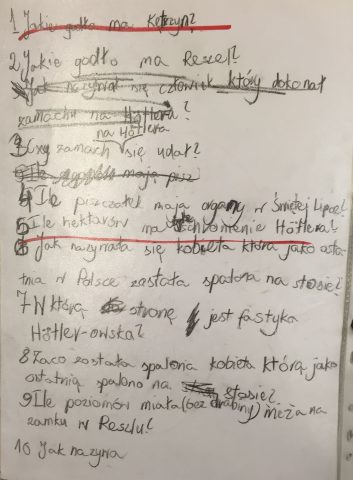 1 Jakie godło ma Kętrzyn?
2 Jakie godło ma Reszel?
Jak nazywał się człowiek który dokonał
zamachu na Hötlera?
na Hötlera
3 Czy zamach się udał?
4 Ile piszczałek mają organy w Świętej Lipce?
5 Ile hektarów ma schronienie Hötlera?
6 Jak nazywała się kobieta która jako osta-
tnia w Polsce została spalona na stosie?
7 W którą stronę jest fastyka
Hötler-owska?
8 Zaco została spalona kobieta którą jako
ostatnią spalono na stosie?
9 Ile poziomów miała (bez drabiny) wieża na
zamku w Reszlu?
10 Jak nazywa